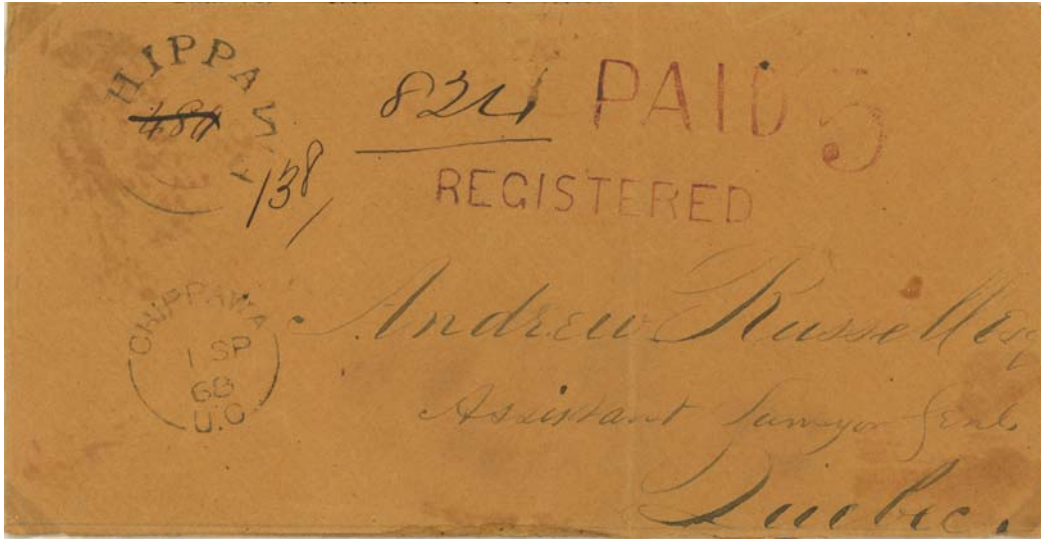 HIPPAWA
484
138
824
PAID 5
REGISTERED
CHIPPAWA
1 SP
68
U.C
Andrew Russell Esq
Assistant Surveyor Genl.
Quebec.